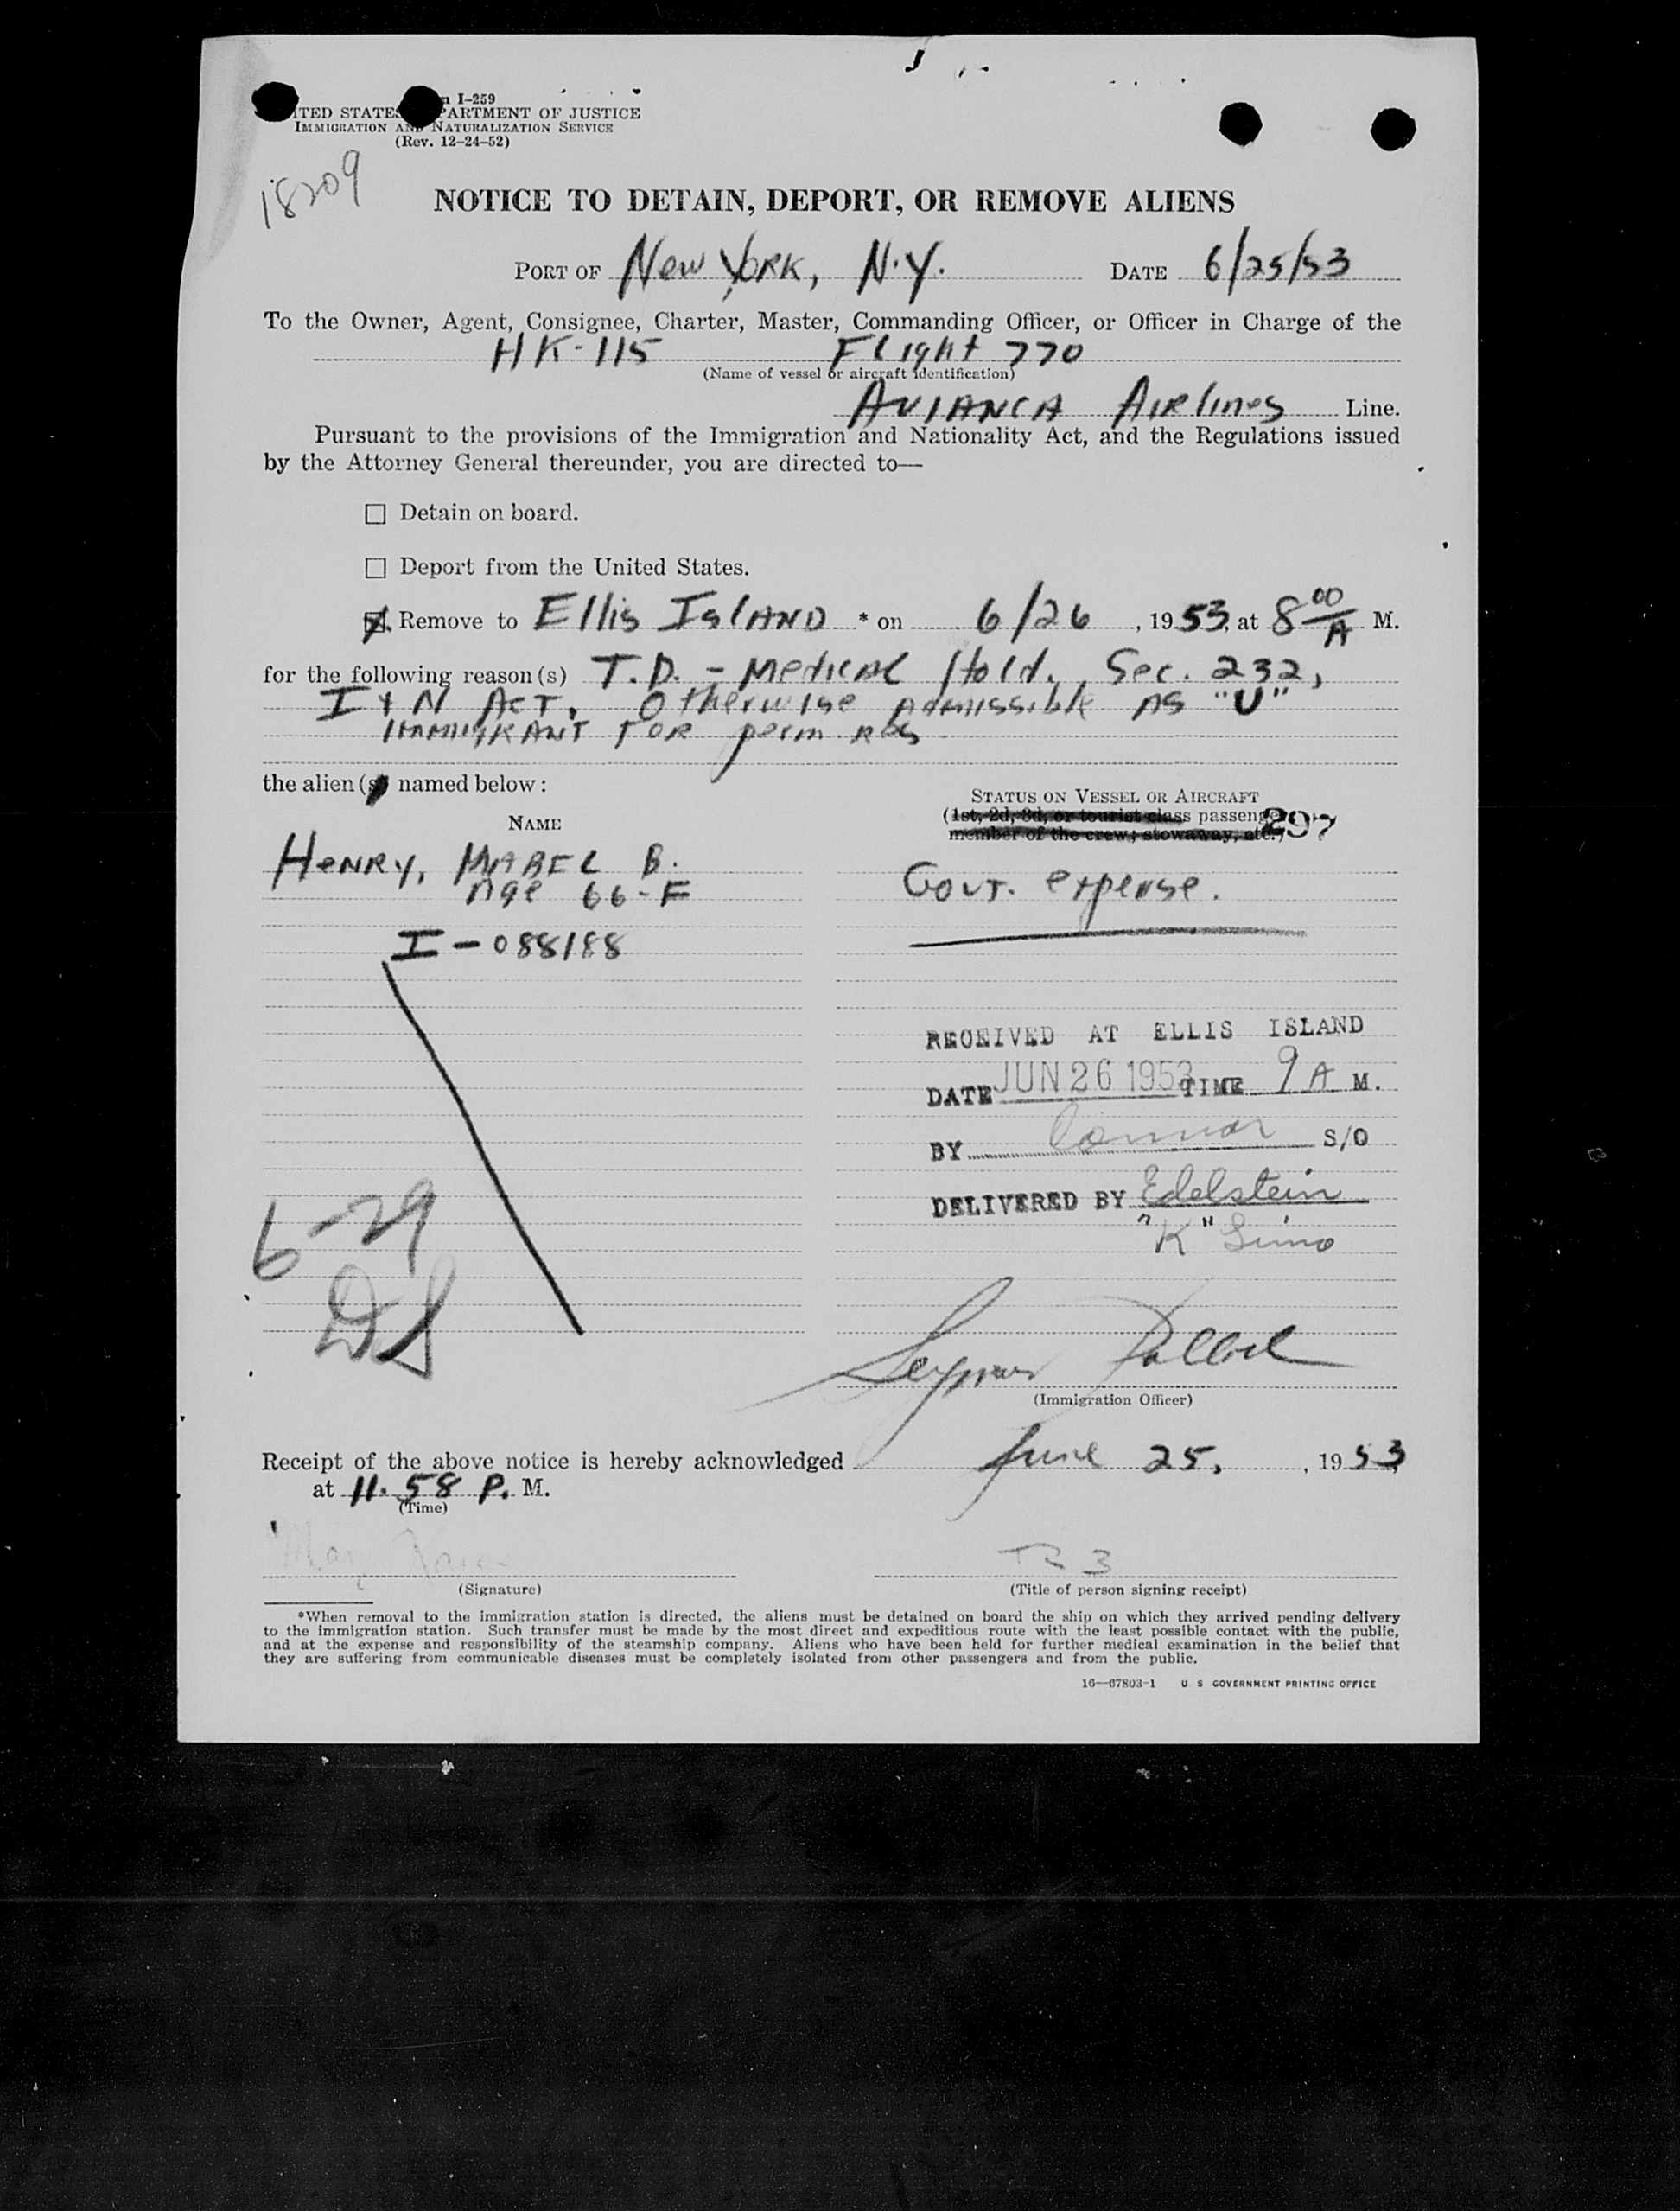 I-259
ITED STATES PARTMENT OF JUSTICE
IMMIGRATION AND NATURALIZATION SERVICE
(Rev. 12-24-52)
18209
NOTICE TO DETAIN, DEPORT, OR REMOVE ALIENS
PORT OF New York, N.Y. DATE 6/25/53
To the Owner, Agent, Consignee, Charter, Master, Commanding Officer, or Officer in Charge of the
HK-115 Flight 770
(Name of vessel or aircraft identification)
AVIANCA Airlines Line.
Pursuant to the provisions of the Immigration and Nationality Act, and the Regulations issued
by the Attorney General thereunder, you are directed to—
Detain on board.
Deport from the United States.
Remove to Ellis Island * on 6/26, 1953, at 8 00/A M.
for the following reason(s) T.D. - Medical Hold. Sec. 232,
I & N Act. Otherwise admissible as "U"
Immigrant for perm res
the alien(s) named below:
STATUS ON VESSEL OR AIRCRAFT
(1st, 2d, 3d, or tourist class passenger
297
member of the crew; stowaway, etc.)
NAME
Henry, Mabel B.
Age 66-F
Govt. expense.
I-088188
RECEIVED AT ELLIS ISLAND
DATE JUN 26 1953 TIME 9 A M.
BY Connor S/O
DELIVERED BY Edelstein
"K" Limo
6-29
DS
Seymour Pollack
(Immigration Officer)
Receipt of the above notice is hereby acknowledged June 25, 1953
at 11.58 P. M.
(Time)
(Signature)
(Title of person signing receipt)
*When removal to the immigration station is directed, the aliens must be detained on board the ship on which they arrived pending delivery
to the immigration station. Such transfer must be made by the most direct and expeditious route with the least possible contact with the public,
and at the expense and responsibility of the steamship company. Aliens who have been held for further medical examination in the belief that
they are suffering from communicable diseases must be completely isolated from other passengers and from the public.
16—67803-1 U S GOVERNMENT PRINTING OFFICE